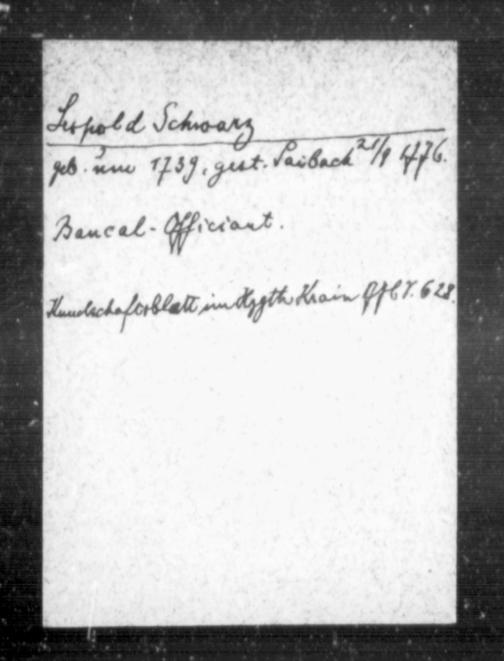 Leopold Schwarz
geb. um 1739, gest. Laibach 21/9 1776.
Bancal-Officiant.
Kundschaftsblatt im Hzgth Krain 628.